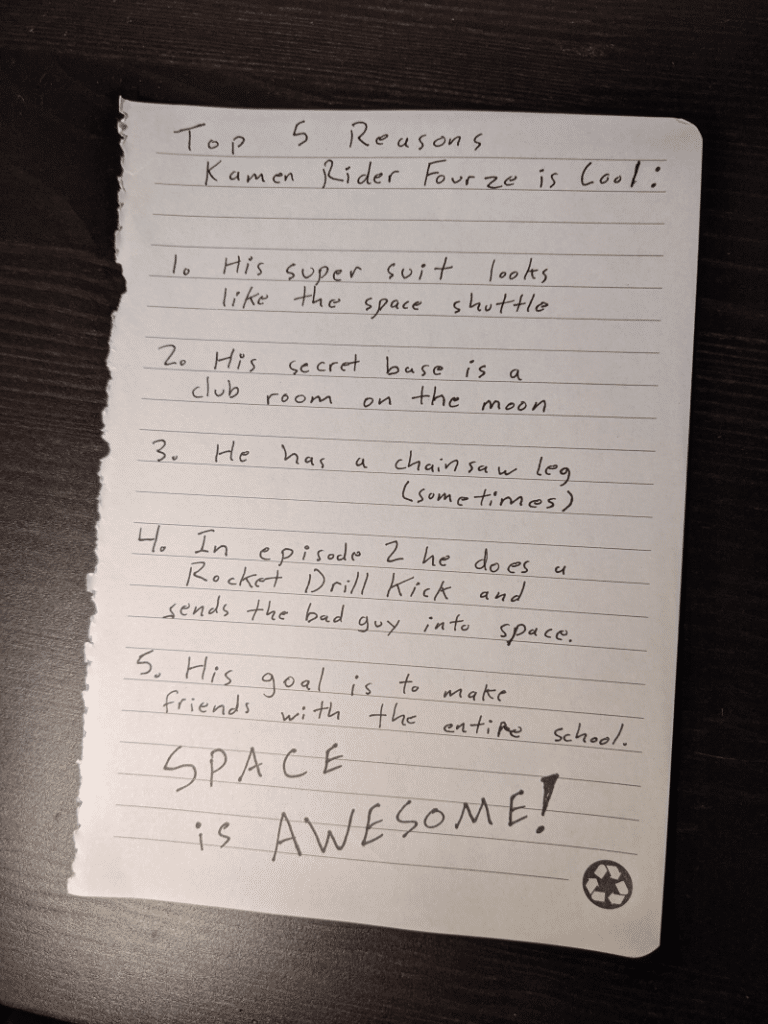 Top 5 Reasons
Kamen Rider Fourze is Cool:
1. His super suit looks
like the space shuttle
2. His secret base is a
club room on the moon
3. He has a chainsaw leg
(sometimes)
4. In episode 2 he does a
Rocket Drill Kick and
sends the bad guy into space.
5. His goal is to make
friends with the entire school.
SPACE
is AWESOME!